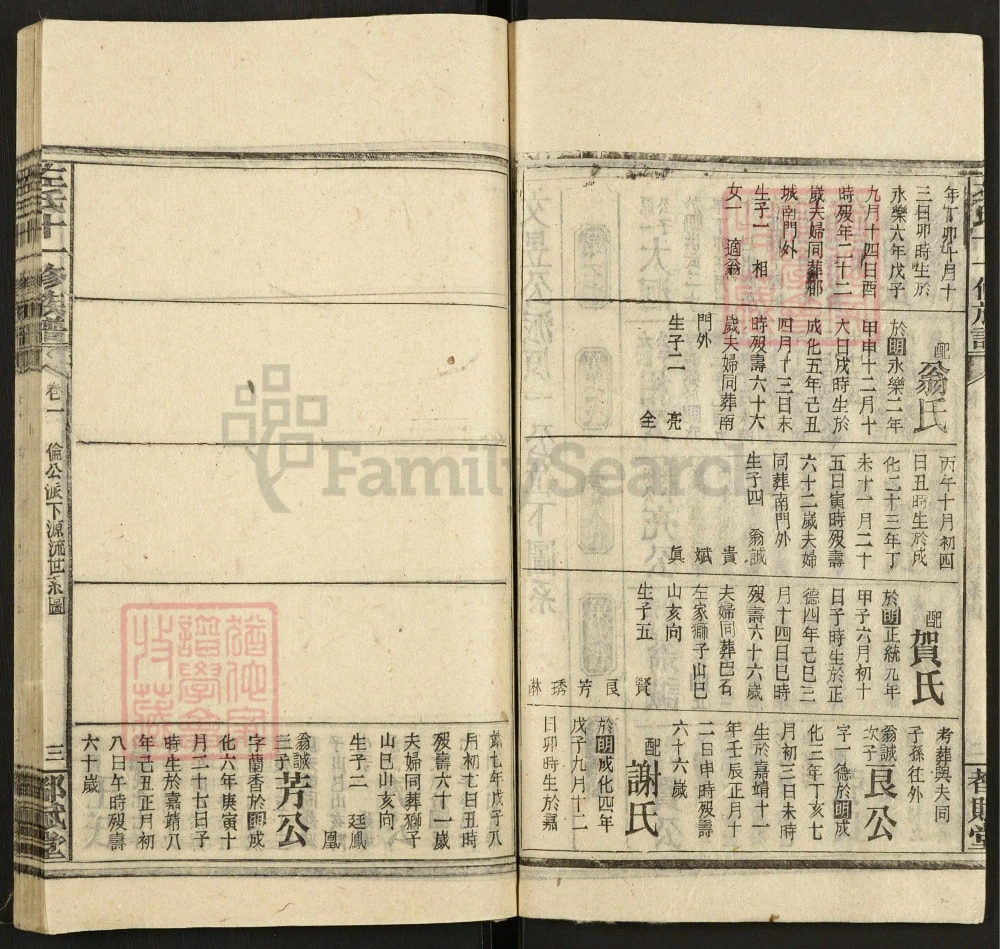 年丁卯十月十
三日卯時生於
永樂六年戊子
九月十四日酉
時歿年二十二
歲夫婦同葬鄒
城南門外
生子一 相
女一 適翁
配翁氏
於明永樂二年
甲申十二月十
大日戌時生於
成化五年己丑
四月十三日未
時歿壽六十六
歲夫婦同葬南
門外
生子二 亮
全
丙午十月初四
日丑時生於成
化二十三年丁
未十一月二十
五日寅時歿壽
六十二歲夫婦
同葬南門外
生子四 翁誠
貴
斌
真
配賀氏
於明正統九年
甲子六月初十
日子時生於正
德四年己巳三
月十四日巳時
歿壽六十六歲
夫婦同葬巴石
左家獅子山巳
山亥向
生子五
賢 良 芳 琇 琳
考葬與夫同
子孫往外
翁誠次子良公
字一德於明成
化三年丁亥七
月初三日未時
生於嘉靖十一
年壬辰正月十
二日申時歿壽
六十六歲
配謝氏
於明成化四年
戊子九月十二
日卯時生於嘉
靖七年戊子八
月初七日丑時
歿壽六十一歲
夫婦同葬獅子
山巳山亥向
生子二 廷鳳
凰
翁誠三子芳公
字蘭香於明成
化六年庚寅十
月二十七日子
時生於嘉靖八
年己丑正月初
八日午時歿壽
六十歲
左氏十一修族譜
卷一
倫公派下源流世系圖
三
都賦堂
FamilySearch